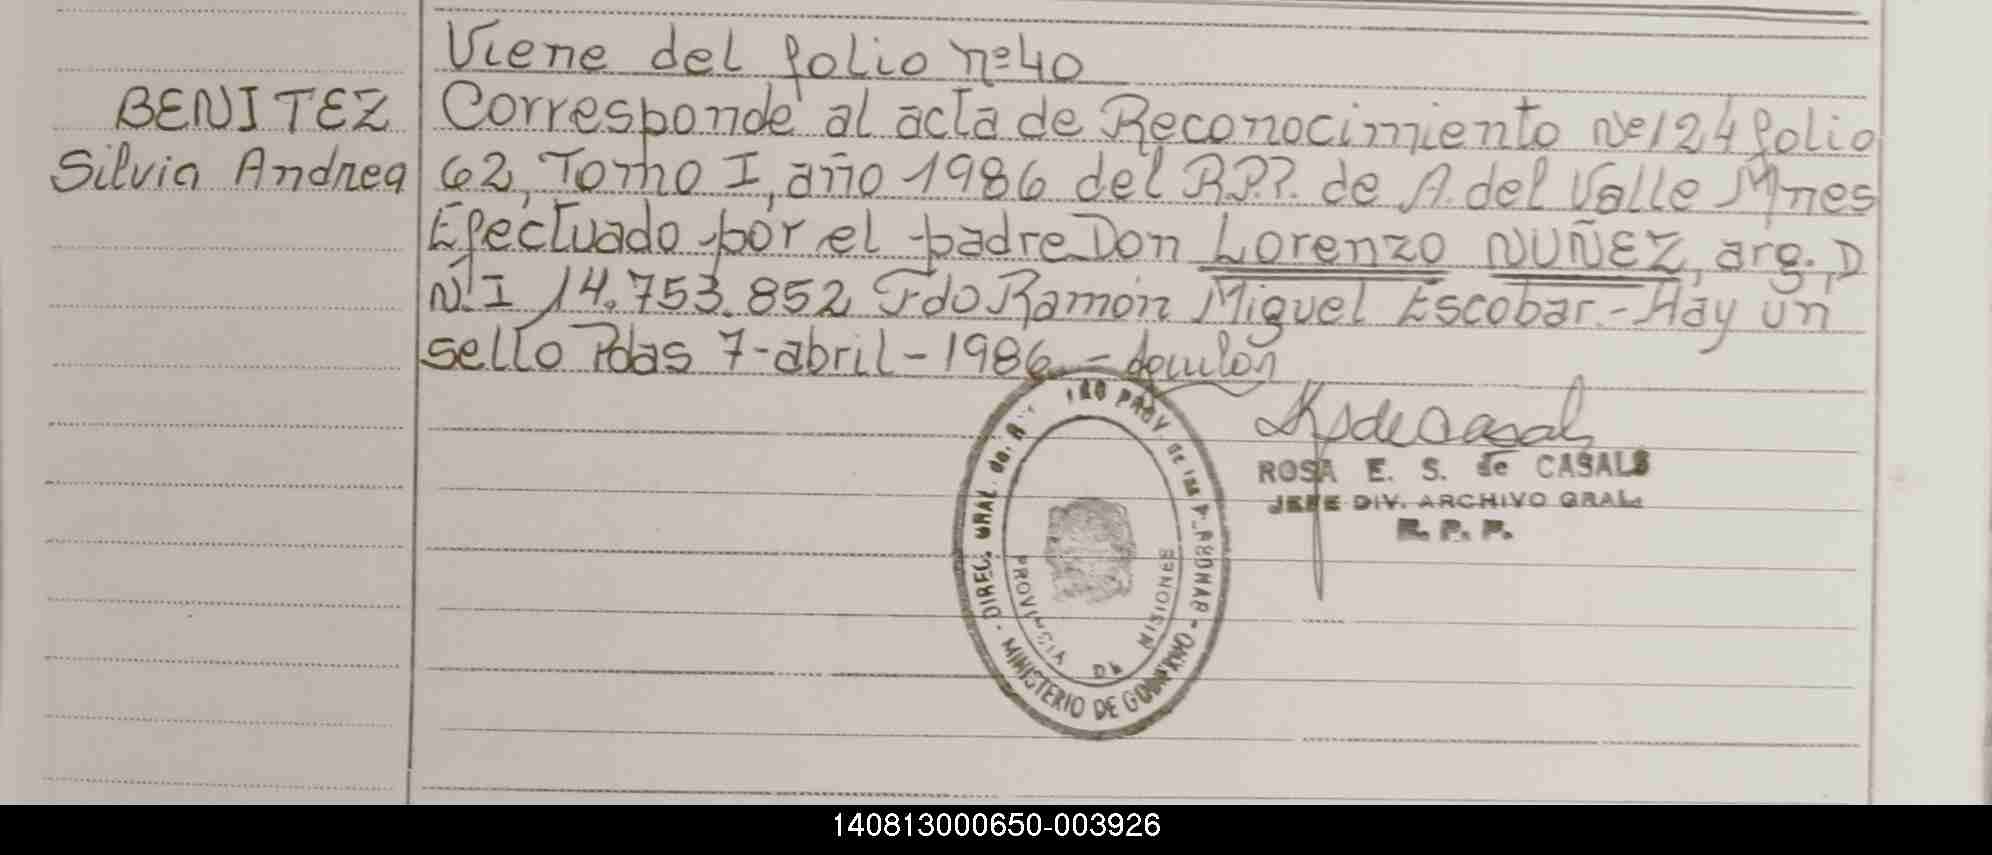 Viene del folio nº 40
BENITEZ
Silvia Andrea
Corresponde al acta de Reconocimiento Nº 124 folio
62, Tomo I, año 1986 del R.P.P. de A. del Valle Mnes
Efectuado por el padre Don Lorenzo NUÑEZ, arg., D
N.I 14.753.852 Fdo Ramón Miguel Escobar.- Hay un
sello Pdas 7-abril-1986.-
ROSA E. S. de CASALS
JEFE DIV. ARCHIVO GRAL.
R. P. P.
DIREC. GRAL. de PROV. DE LAS PERSONAS - MINISTERIO DE GOBIERNO -
PROVINCIA DE MISIONES
140813000650-003926